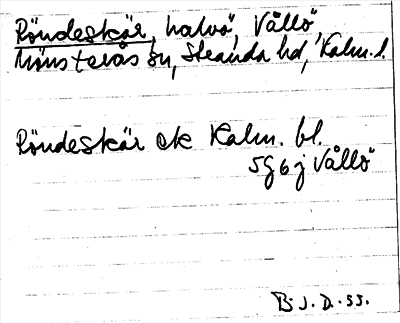 Röndeskär, halvö, Vållö,
Mönsterås sn, Stranda hd, Kalm. l.
Röndeskär ek Kalm. bl.
5G6j Vållö
B.J.D. 55.